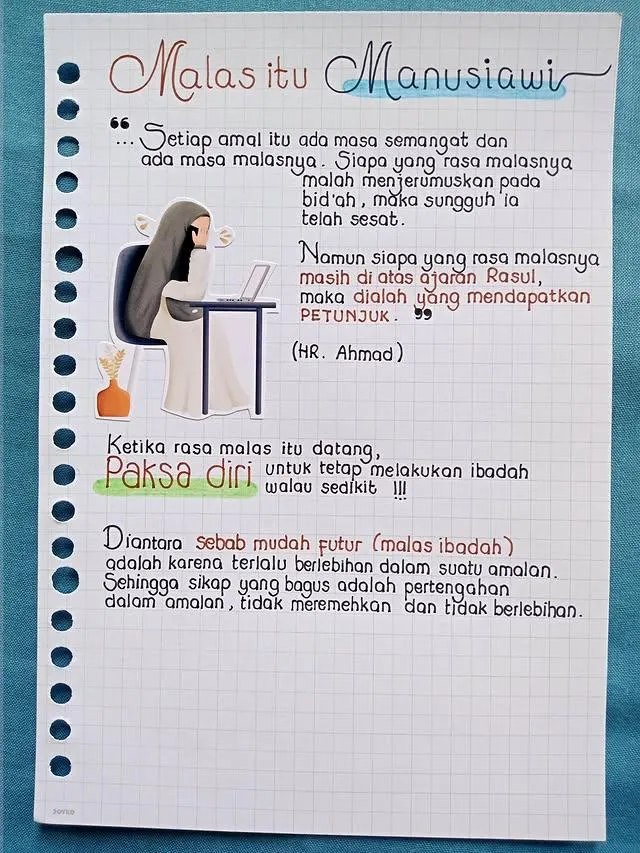 Malas itu Manusiawi
“ ... Setiap amal itu ada masa semangat dan
ada masa malasnya. Siapa yang rasa malasnya
malah menjerumuskan pada
bid'ah, maka sungguh ia
telah sesat.
Namun siapa yang rasa malasnya
masih di atas ajaran Rasul,
maka dialah yang mendapatkan
PETUNJUK. ”
(HR. Ahmad)
Ketika rasa malas itu datang,
Paksa diri untuk tetap melakukan ibadah
walau sedikit !!!
Diantara sebab mudah futur (malas ibadah)
adalah karena terlalu berlebihan dalam suatu amalan.
Sehingga sikap yang bagus adalah pertengahan
dalam amalan, tidak meremehkan dan tidak berlebihan.
JOYKO